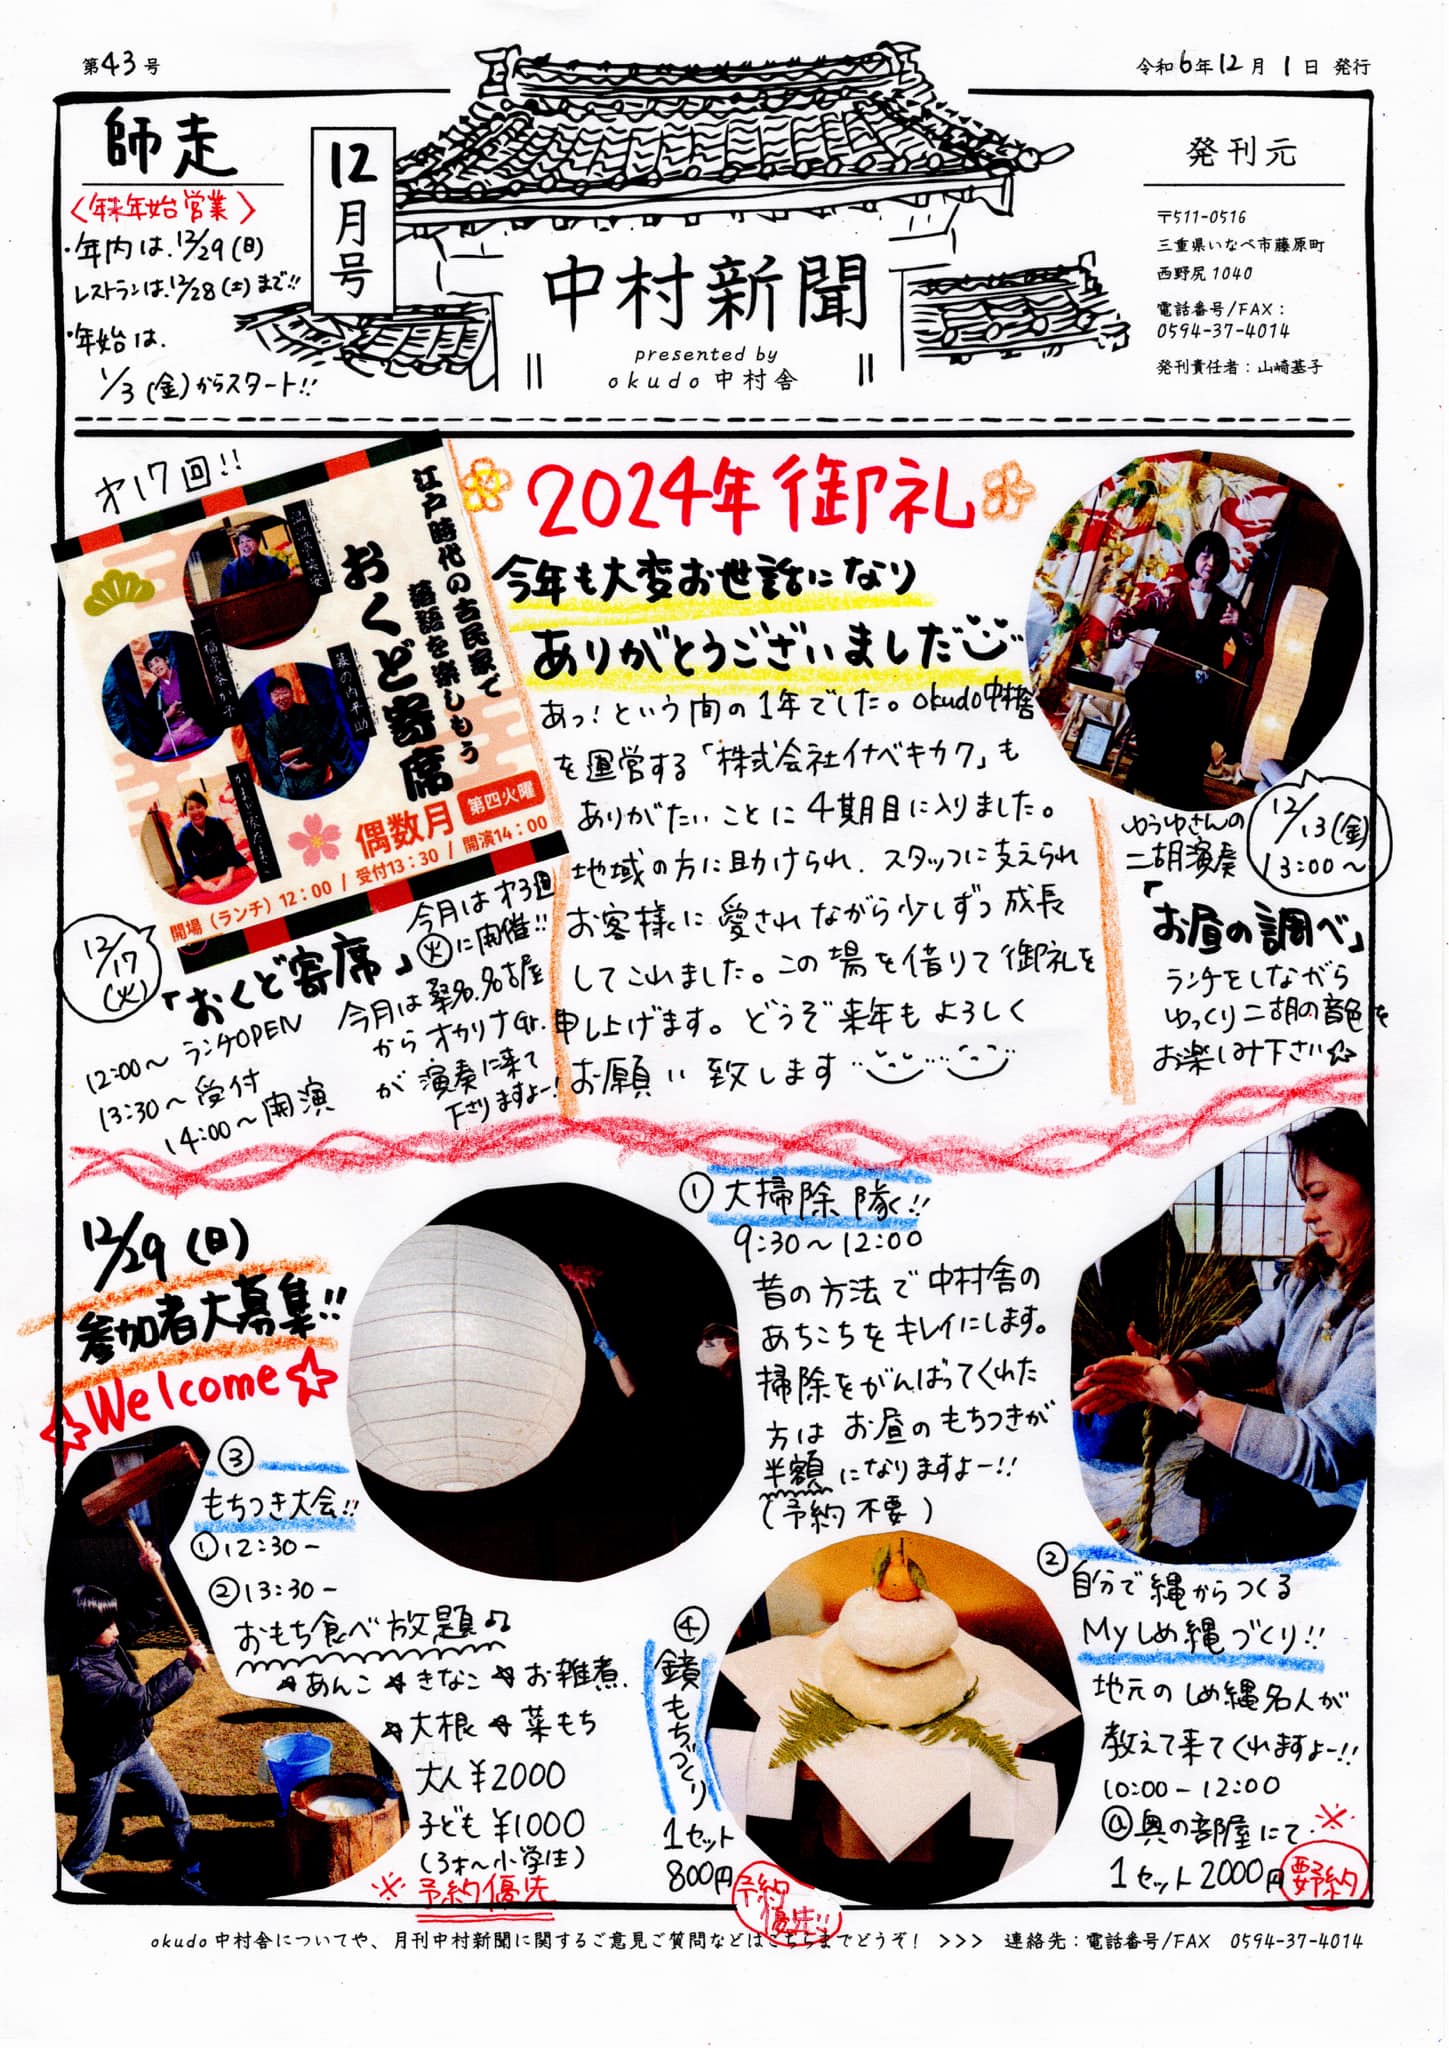 第43号
令和6年12月1日 発行
師走
〈年末年始営業〉
・年内は、12/29(日)
レストランは、12/28(土)まで!!
・年始は、
1/3(金)からスタート!!
12月号
中村新聞
presented by
okudo 中村舎
発刊元
〒511-0516
三重県いなべ市藤原町
西野尻1040
電話番号/FAX：
0594-37-4014
発刊責任者：山崎基子
才17回!!
江戸時代の古民家で
落語を楽しもう
おくど寄席
偶数月 第四火曜
開場（ランチ）12:00 / 受付13:30 / 開演14:00
12/17(火)
「おくど寄席」
12:00〜 ランチOPEN
13:30〜受付
14:00〜開演
今月は才3週
火に開催!!
今月は桑名,名古屋
からオカリナGr.
が演奏に来て
下さりますよー!
2024年御礼
今年も大変お世話になり
ありがとうございました
あっ!という間の1年でした。okudo中村舎
を運営する「株式会社イナベキカク」も
ありがたいことに4期目に入りました。
地域の方に助けられ、スタッフに支えられ
お客様に愛されながら少しずつ成長
してこれました。この場を借りて御礼を
申し上げます。どうぞ来年もよろしく
お願い致します
12/13(金)
13:00〜
ゆうゆさんの
二胡演奏
「お昼の調べ」
ランチをしながら
ゆっくり二胡の音色を
お楽しみ下さい☆
12/29(日)
参加者大募集!!
☆Welcome☆
① 大掃除隊!!
9:30〜12:00
昔の方法で中村舎の
あちこちをキレイにします。
掃除をがんばってくれた
方はお昼のもちつきが
半額になりますよー!!
(予約不要)
② 自分で縄からつくる
Myしめ縄づくり!!
地元のしめ縄名人が
教えて来てくれますよー!!
10:00-12:00
@奥の部屋にて
1セット2000円 ※要予約
③
もちつき大会!!
①12:30-
②13:30-
おもち食べ放題♫
★あんこ★きなこ★お雑煮、
★大根★菜もち
大人¥2000
子ども¥1000
(3才〜小学生)
※予約優先
④
鏡もちづくり
1セット
800円
予約優先!!
okudo中村舎についてや、月刊中村新聞に関するご意見ご質問などはこちらまでどうぞ！ >>> 連絡先：電話番号/FAX 0594-37-4014